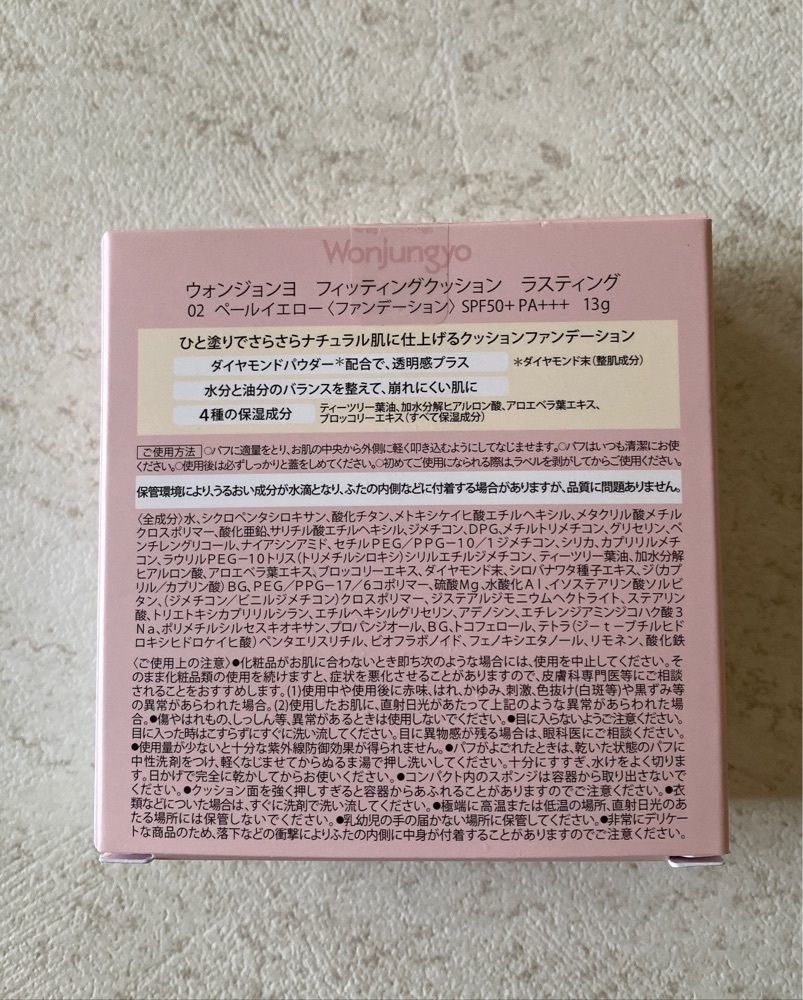 Wonjungyo
ウォンジョンヨ フィッティングクッション ラスティング
02 ペールイエロー〈ファンデーション〉SPF50+ PA+++ 13g
ひと塗りでさらさらナチュラル肌に仕上げるクッションファンデーション
ダイヤモンドパウダー*配合で、透明感プラス *ダイヤモンド末（整肌成分）
水分と油分のバランスを整えて、崩れにくい肌に
4種の保湿成分 ティーツリー葉油、加水分解ヒアルロン酸、アロエベラ葉エキス、
ブロッコリーエキス（すべて保湿成分）
ご使用方法 ○パフに適量をとり、お肌の中央から外側に軽く叩き込むようにしてなじませます。○パフはいつも清潔にお使
ください。○使用後は必ずしっかりと蓋をしめてください。○初めてご使用になられる際は、ラベルを剥がしてからご使用ください。
保管環境により、うるおい成分が水滴となり、ふたの内側などに付着する場合がありますが、品質に問題ありません。
〈全成分〉水、シクロペンタシロキサン、酸化チタン、メトキシケイヒ酸エチルヘキシル、メタクリル酸メチル
クロスポリマー、酸化亜鉛、サリチル酸エチルヘキシル、ジメチコン、DPG、メチルトリメチコン、グリセリン、ペ
ンチレングリコール、ナイアシンアミド、セチルPEG／PPG－10／1ジメチコン、シリカ、カプリリルメチ
コン、ラウリルPEG－10トリス（トリメチルシロキシ）シリルエチルジメチコン、ティーツリー葉油、加水分解
ヒアルロン酸、アロエベラ葉エキス、ブロッコリーエキス、ダイヤモンド末、シロバナワタ種子エキス、ジ（カプ
リル／カプリン酸）BG、PEG／PPG－17／6コポリマー、硫酸Mg、水酸化Al、イソステアリン酸ソルビ
タン、（ジメチコン／ビニルジメチコン）クロスポリマー、ジステアルジモニウムヘクトライト、ステアリン
酸、トリエトキシカプリリルシラン、エチルヘキシルグリセリン、アデノシン、エチレンジアミンジコハク酸3
Na、ポリメチルシルセスキオキサン、プロパンジオール、BG、トコフェロール、テトラ（ジーｔーブチルヒド
ロキシヒドロケイヒ酸）ペンタエリスリチル、ビオフラボノイド、フェノキシエタノール、リモネン、酸化鉄
〈ご使用上の注意〉●化粧品がお肌に合わないとき即ち次のような場合には、使用を中止してください。そ
のまま化粧品類の使用を続けますと、症状を悪化させることがありますので、皮膚科専門医等にご相談
されることをおすすめします。（1）使用中や使用後に赤味、はれ、かゆみ、刺激、色抜け（白斑等）や黒ずみ等
の異常があらわれた場合。（2）使用したお肌に、直射日光があたって上記のような異常があらわれた場
合。●傷やはれもの、しっしん等、異常があるときは使用しないでください。●目に入らないようご注意ください。
目に入った時はこすらずにすぐに洗い流してください。目に異物感が残る場合は、眼科医にご相談ください。
●使用量が少ないと十分な紫外線防御効果が得られません。●パフがよごれたときは、乾いた状態のパフに
中性洗剤をつけ、軽くなじませてからぬるま湯で押し洗いしてください。十分にすすぎ、水けをよくきりま
す。日かげで完全に乾かしてからお使いください。●コンパクト内のスポンジは容器から取り出さないで
ください。●クッション面を強く押しすぎると容器からあふれることがありますのでご注意ください。●衣
類などについた場合は、すぐに洗剤で洗い流してください。●極端に高温または低温の場所、直射日光のあ
たる場所には保管しないでください。●乳幼児の手の届かない場所に保管してください。●非常にデリケー
トな商品のため、落下などの衝撃によりふたの内側に中身が付着することがありますのでご注意ください。